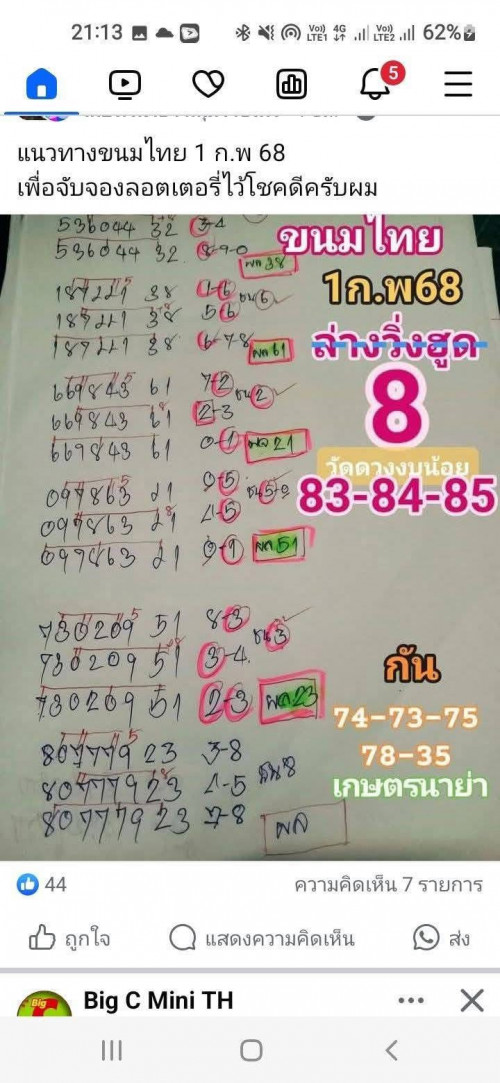 21:13 Vo) LTE1 4G Vo) LTE2 62%
5
แนวทางขนมไทย 1 ก.พ 68
เพื่อจับจองลอตเตอรี่ไว้โชคดีครับผม
536044 32 3-4
536044 32 8-9-0
ผล 38
187221 38 1-6
187221 38 5-6 ชน 6
187221 38 6-7-8 ผล 61
669843 61 7-2 ชน 2
669843 61 2-3
669843 61 0-1 ผล 21
097863 21 9-5
097863 21 4-5
097863 21 9-1 ผล 51
730209 51 8-3 ชน 3
730209 51 3-4
730209 51 2-3 ผล 23
807779 23 3-8
807779 23 4-5 ชน 8
807779 23 7-8 ผล
ขนมไทย
1ก.พ68
ล่างวิ่งฮูด
8
วัดดวงงบน้อย
83-84-85
กัน
74-73-75
78-35
เกษตรนาย่า
44 ความคิดเห็น 7 รายการ
ถูกใจ แสดงความคิดเห็น ส่ง
Big
Big C Mini TH